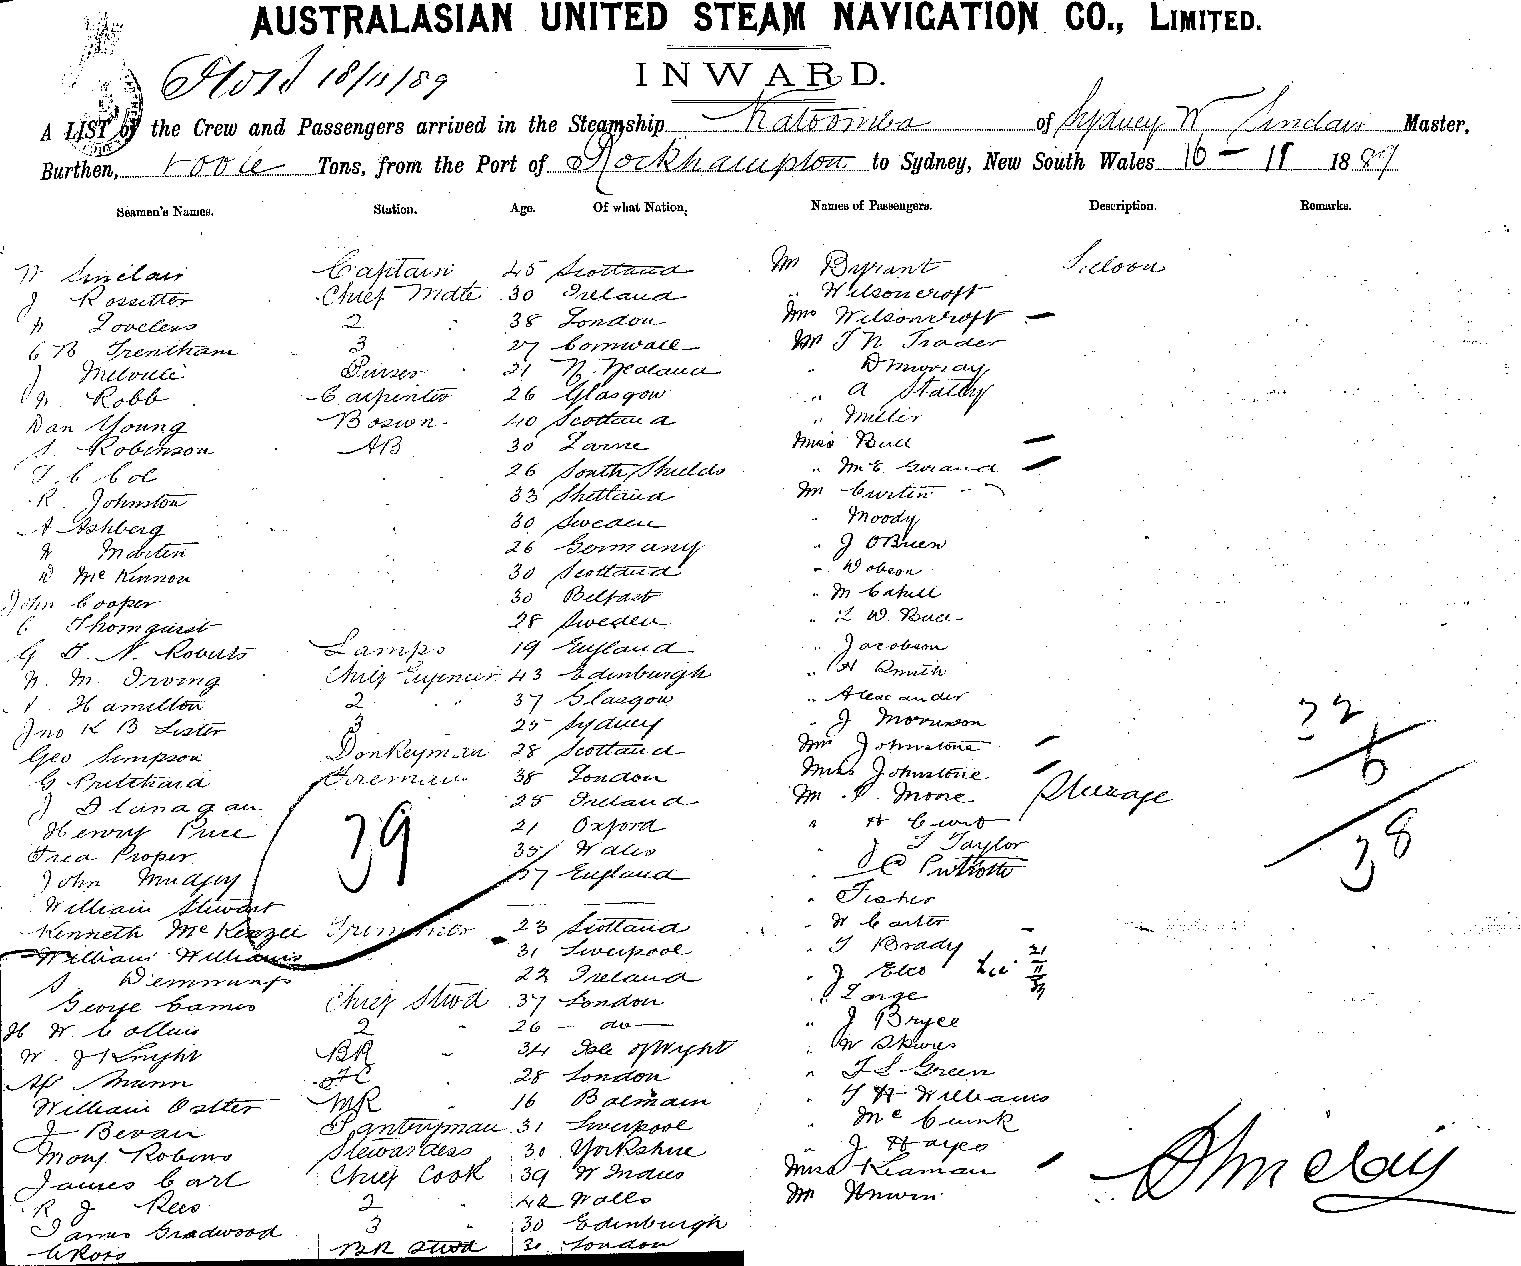 AUSTRALASIAN UNITED STEAM NAVIGATION CO., LIMITED.
INWARD.
18/11/89
A LIST of the Crew and Passengers arrived in the Steamship Katoomba of Sydney W Sinclair Master,
Burthen, Tons, from the Port of Rockhampton to Sydney, New South Wales 16 - 11 1889
Seamen's Names. Station. Age. Of what Nation, Names of Passengers. Description. Remarks.
W Sinclair Captain 45 Scotland Mr Bryant Saloon
J Rossitter Chief Mate 30 Ireland " Wilsoncroft
Loveless 2 " 38 London Mrs Wilsoncroft -
C B Trentham 3 " 27 Cornwall Mr T N Trader
J Melville Purser 21 N. Zealand " D Murray
W. Robb Carpenter 26 Glasgow " A Statey
Dan Young Bosun 40 Scotland " Miller
S. Robinson AB 30 Larne Miss Bull -
T C Col 26 South Shields "
R. Johnston 33 Shetland Mr Curtin
A Ashberg 30 Sweden " Moody
W Martin 26 Germany " J OBrien
D McKinnon 30 Scotland " Dobson
John Cooper 30 Belfast " M Cahill
C 28 Sweden " L W Bull
G T. N. Roberts Lamps 19 England " Jacobson
W. M. Irving Chief Engineer 43 Edinburgh " H Smith
Hamilton 2 " 37 Glasgow " Alexander
Jno K B Lister 3 25 Sydney " J Morrison
Geo Simpson Donkeyman 28 Scotland Mrs Johnstone -
G Pritchard Fireman 38 London Miss Johnstone -
J Flanagan 25 Ireland Mr Moore Steerage
Henry Price 21 Oxford "
Fred Proper 35 Wales " J T Taylor
John Mudgey 37 England "
William Stewart " Fisher
Kenneth McKenzie Trimmer 23 Scotland " W Carter
William Williams 31 Liverpool " T Brady
S Demmings 22 Ireland " J Elco
George Eames Chief Stwd 37 London " Large
H W Collins 2 " 26 - do - " J Bryce
W. J Knight BR " 34 Isle of Wight " W Skews
Munn FC " 28 London " T S Green
William Ostler MR " 16 Balmain " T H Williams
J Bevan Pantryman 31 Liverpool "
Mary Robins Stewardess 30 Yorkshire " J Hayes
James Carl Chief Cook 39 W Indies Miss Kiaman -
R J Rees 2 " 42 Walls Mr Unwin
James Gradwood 3 " 30 Edinburgh
C Ross BR Stwd 30 London
39
32
6
38